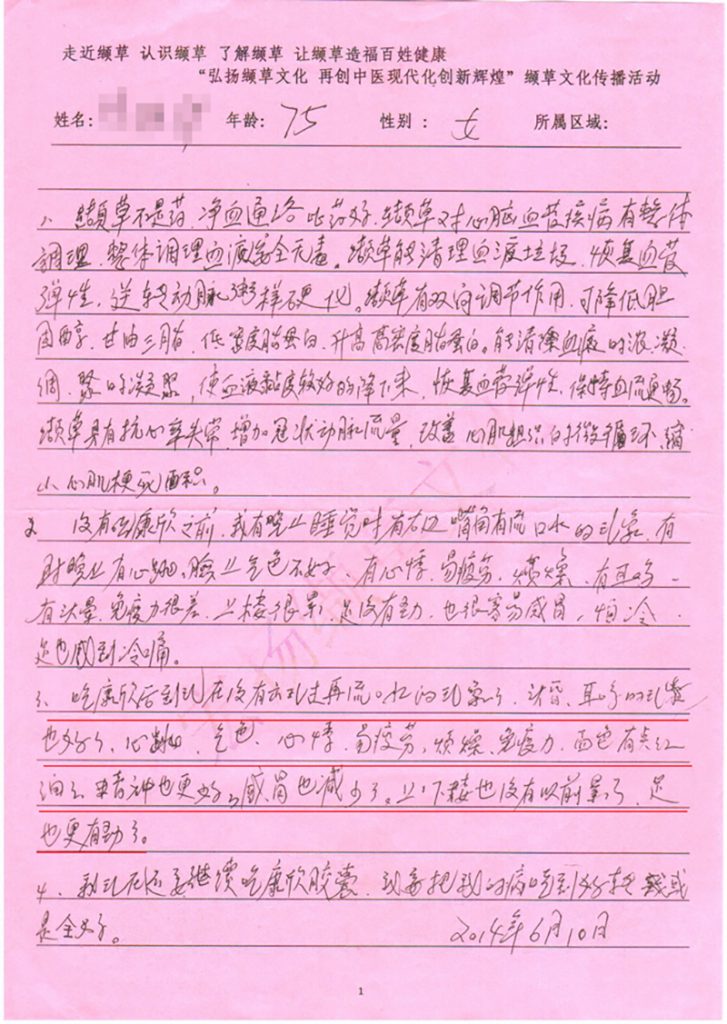 走近缬草 认识缬草 了解缬草 让缬草造福百姓健康
“弘扬缬草文化 再创中医现代化创新辉煌” 缬草文化传播活动
姓名: 年龄: 75 性别: 女 所属区域:
1、缬草不是药,净血通络比药好,缬草对心脑血管疾病有整体
调理,整体调理血液安全无毒。缬草能清理血液垃圾,恢复血管
弹性,逆转动脉粥样硬化。缬草有双向调节作用,可降低胆
固醇,甘油三脂,低密度脂蛋白,升高高密度脂蛋白。能清理血液的浓、凝
稠、聚的凝聚,使血液黏度较好的降下来,恢复血管弹性,保持血流通畅。
缬草具有抗心率失常,增加冠状动脉流量,改善心肌组织的微循环,缩
小心肌梗死面积。
2 没有吃康欣之前,我有晚上睡觉时有右边嘴角有流口水的现象,有
时晚上有心跳,脸上气色不好,有心悸,易疲劳,烦燥,有耳鸣、
有头晕,免疫力很差,上楼很累,足没有劲,也很容易感冒,怕冷、
足也感到冷痛。
3、吃康欣后到现在没有出现过再流口水的现象了,头昏、耳鸣的现象
也好了,心跳、气色、心悸、易疲劳,烦燥、免疫力,面色有点红
润了,精神也更好,感冒也减少了。上下楼也没有以前累了,足
也更有劲了。
4、我现在还要继续吃康欣胶囊,我要把我的病吃到好转或
是全好。 2014年6月10日
1